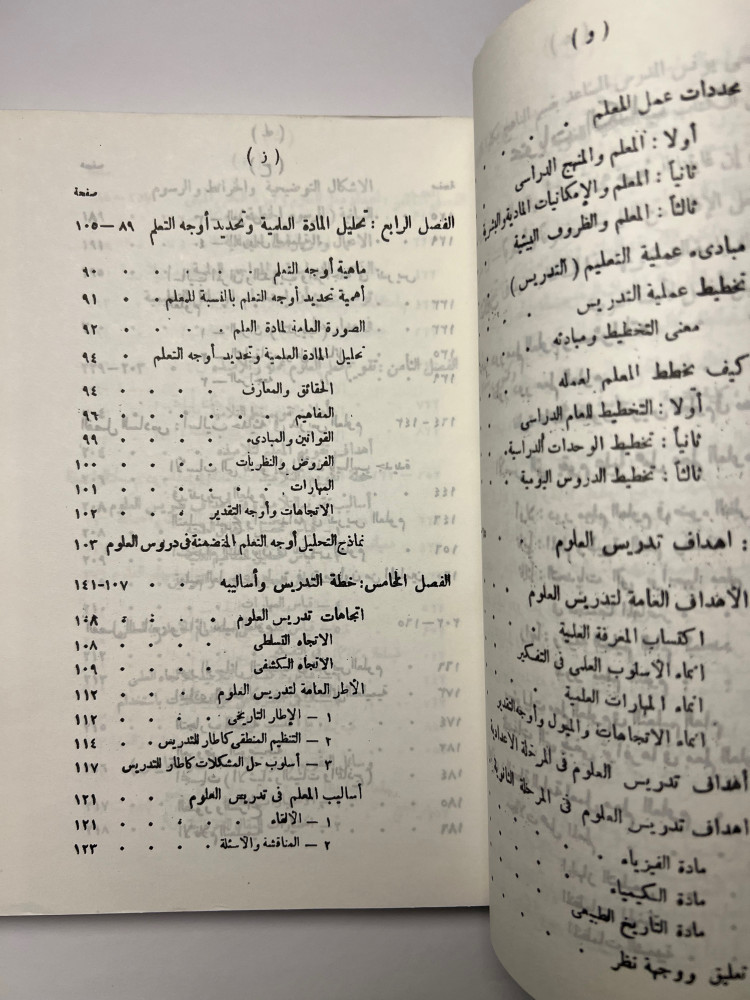 ( و )
محددات عمل المعلم
أولا : المعلم والمنهج الدراسى
ثانياً : المعلم والإمكانيات المادية والبشرية
ثالثاً : المعلم والظروف البيئية
مبادىء عملية التعليم ( التدريس )
تخطيط عملية التدريس
معنى التخطيط ومبادئه
كيف يخطط المعلم لعمله
أولا : التخطيط للعام الدراسى
ثانياً : تخطيط الوحدات الدراسية
ثالثاً : تخطيط الدروس اليومية
: اهداف تدريس العلوم
الأهداف العامة لتدريس العلوم
اكتساب المعرفة العلمية
انماء الأسلوب العلمى فى التفكير
انماء المهارات العلمية
انماء الاتجاهات والميول وأوجه التقدير
أهداف تدريس العلوم فى المرحلة الاعدادية
اهداف تدريس العلوم فى المرحلة الثانوية
مادة الفيزياء
مادة الكيمياء
مادة التاريخ الطبيعى
تعليق ووجهة نظر
( ز )
صفحة
الفصل الرابع : تحليل المادة العلمية وتحديد أوجه التعلم ٨٩ – ١٠٥
ماهية أوجه التعلم . . . . . ٩٠
أهمية تحديد أوجه التعلم بالنسبة للمعلم . ٩١
الصورة العامة لمادة العلم . . . . ٩٢
تحليل المادة العلمية وتحديد أوجه التعلم . ٩٤
الحقائق والمعارف . . . . ٩٤
المفاهيم . . . . . . ٩٦
القوانين والمبادىء . . . . ٩٩
الفروض والنظريات . . . . ١٠٠
المهارات . . . . . . ١٠١
الاتجاهات وأوجه التقدير . . . ١٠٢
نماذج لتحليل أوجه التعلم المتضمنة فى دروس العلوم ١٠٣
الفصل الخامس : خطة التدريس وأساليبه . . ١٠٧-١٤١
اتجاهات تدريس العلوم . . . . ١٠٨
الاتجاه التسلطى . . . . ١٠٨
الاتجاه الكشفى . . . . ١٠٩
الأطر العامة لتدريس العلوم . . . . ١١٢
١ – الإطار التاريخى . . . . ١١٢
٢ – التنظيم المنطقى كاطار للتدريس . . . ١١٤
٣ – أسلوب حل المشكلات كاطار للتدريس ١١٧
أساليب المعلم فى تدريس العلوم . . ١٢١
١ – الالقاء . . . . . ١٢١
٢ – المناقشة والأسئلة . . . . ١٢٣